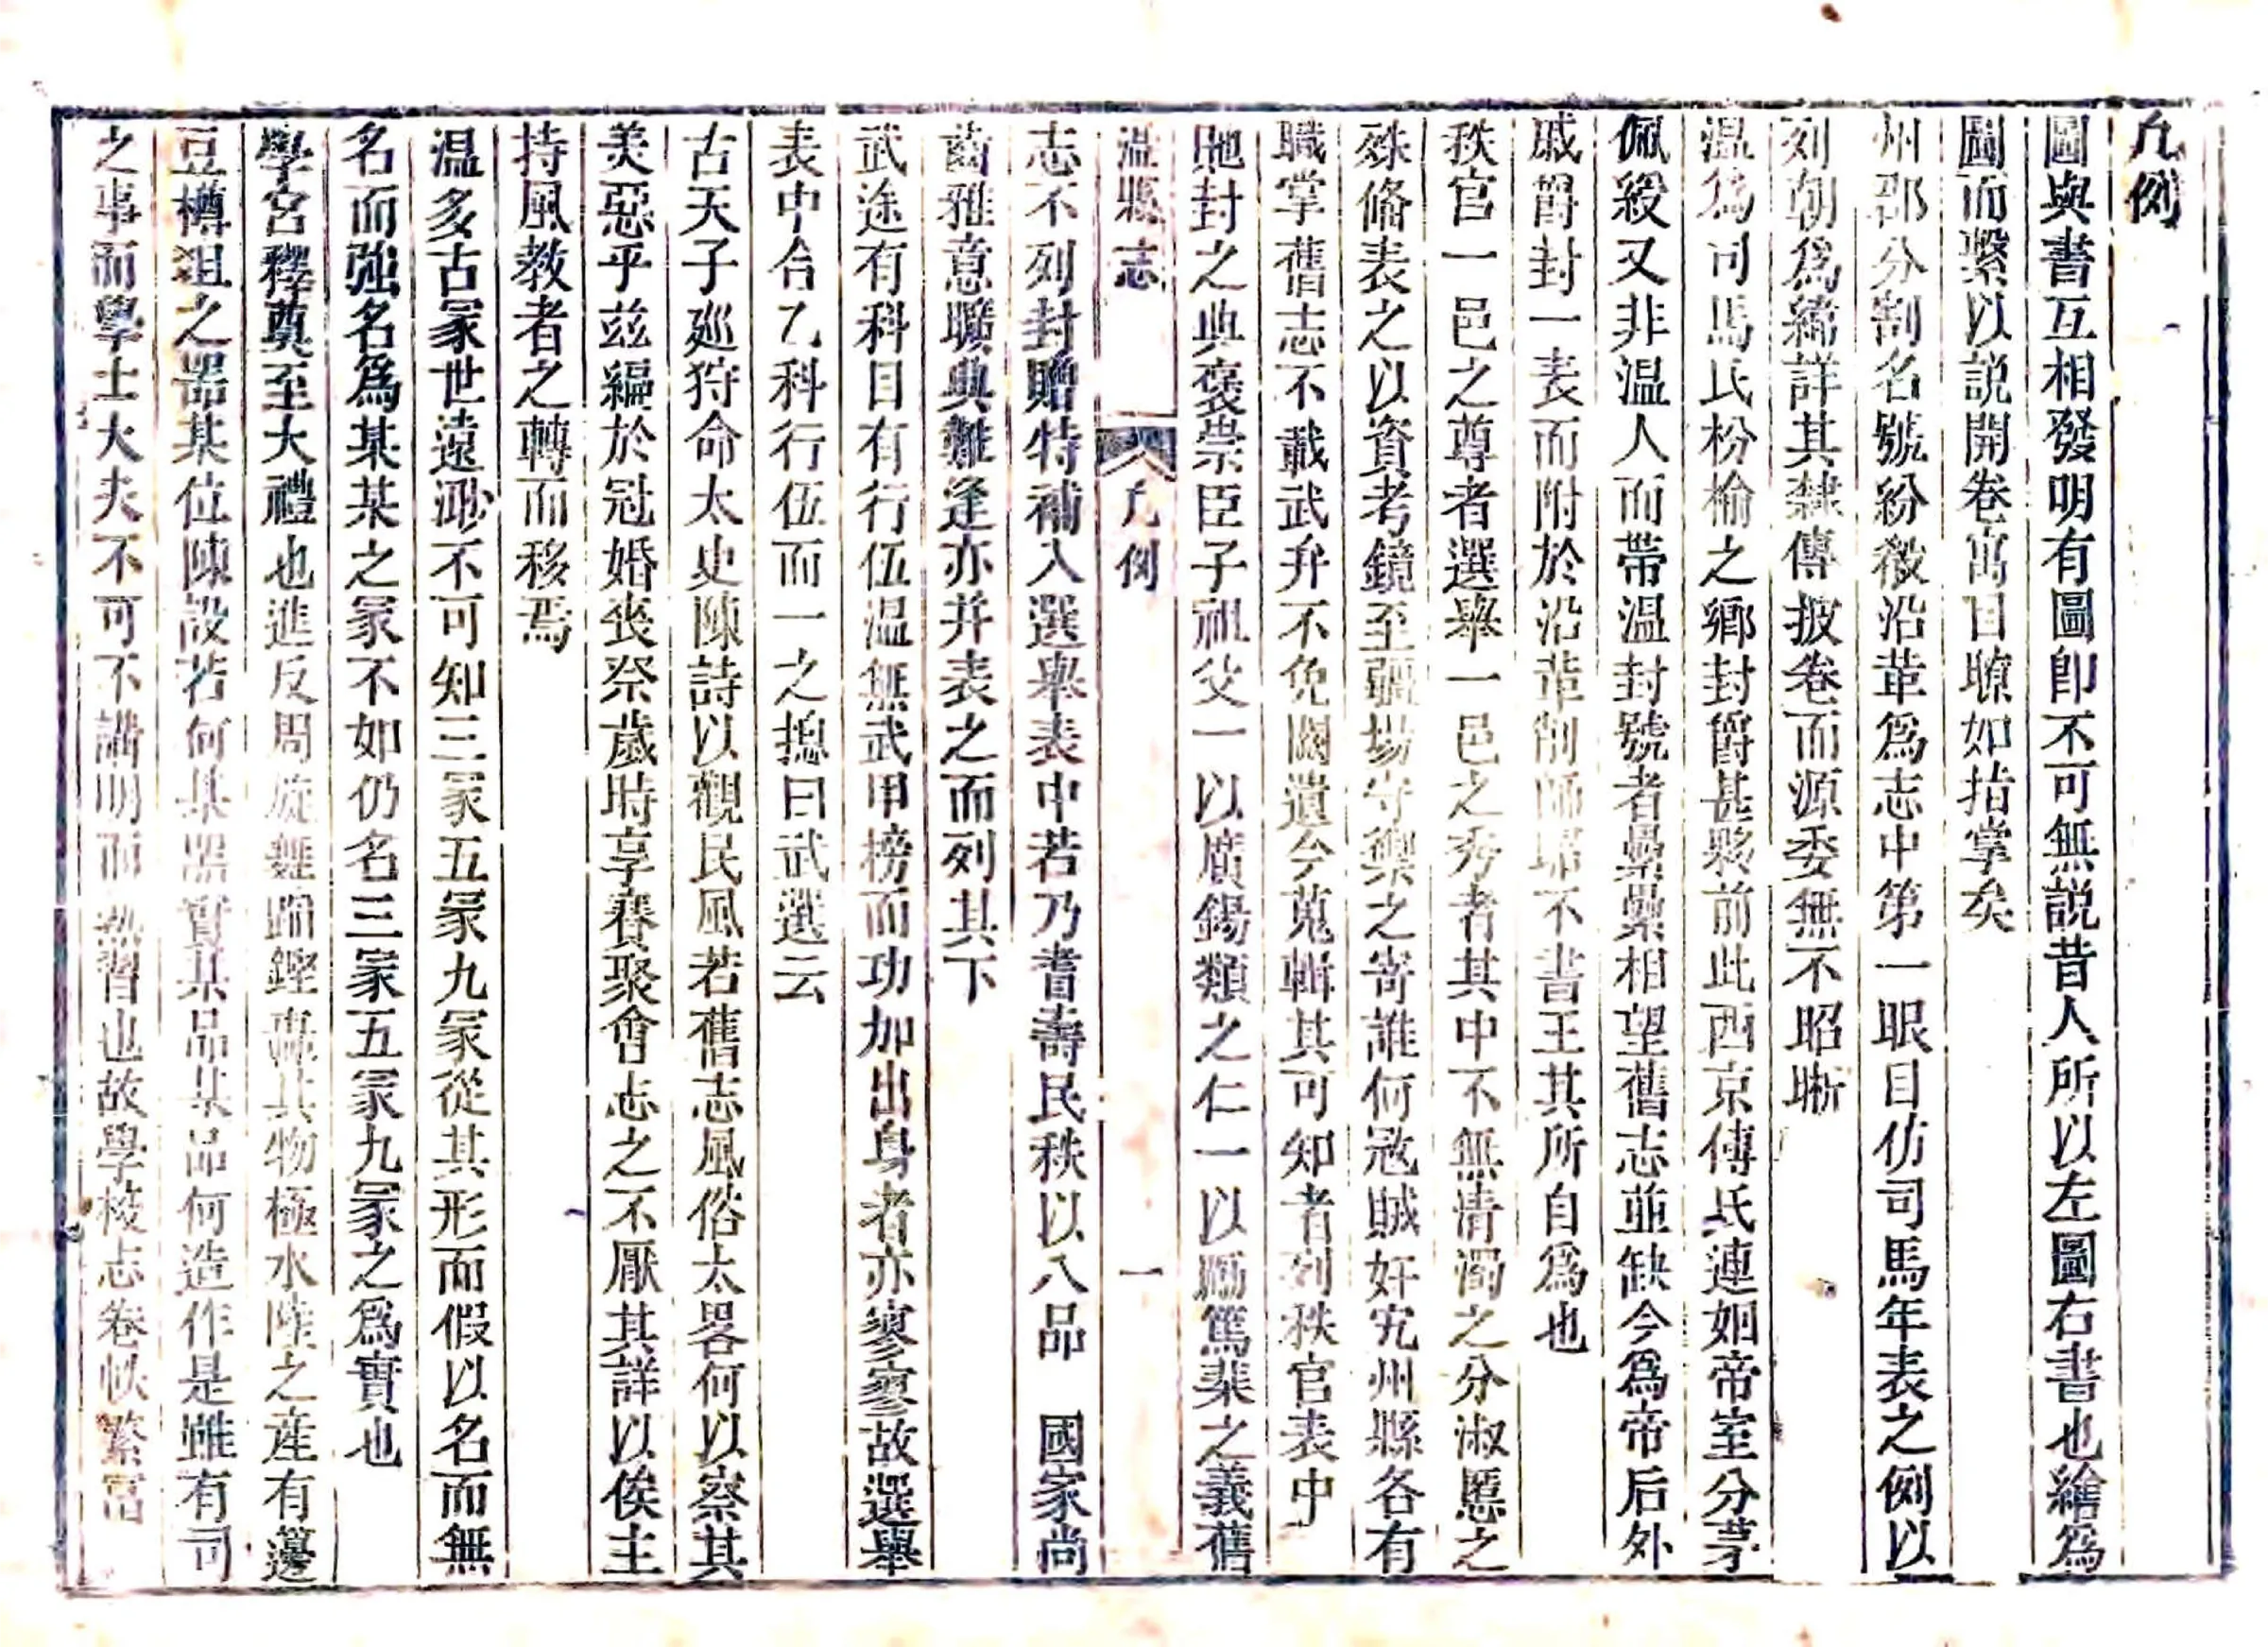 凡例
圖與書互相發明有圖卽不可無説昔人所以左圖右書也繪爲
圖而繫以説開卷寓目瞭如指掌矣
州郡分割名號紛殽沿革爲志中第一眼目仿司馬年表之例以
列朝爲綱詳其隸傳披卷而源委無不昭晰
温爲司馬氏枌榆之鄉封爵甚夥前此西京傅氏連姻帝室分茅
佩綬又非温人而帶温封號者纍纍相望舊志並缺今爲帝后外
戚爵封一表而附於沿革削師歸不書王其所自爲也
秩官一邑之尊者選舉一邑之秀者其中不無清濁之分淑慝之
殊俻表之以資考鏡至疆場守禦之寄誰何冦賊奸宄州縣各有
職掌舊志不載武弁不免闕遺今蒐輯其可知者列秩官表中
貤封之典褒崇臣子祖父一以廣錫類之仁一以勵篤棐之義舊
温縣志 凡例 一
志不列封贈特補入選舉表中若乃耆壽民秩以八品 國家尚
齒雅意曠典難逢亦并表之而列其下
武途有科目有行伍温無武甲榜而功加出身者亦寥寥故選舉
表中合乙科行伍而一之揔曰武選云
古天子廵狩命太史陳詩以觀民風若舊志風俗太畧何以察其
美惡乎兹編於冠婚喪祭歲時享賽聚會志之不厭其詳以俟主
持風教者之轉而移焉
温多古冢世遠邈不可知三冢五冢九冢從其形而假以名而無
名而強名爲某某之冢不如仍名三冢五冢九冢之爲實也
學宮釋奠至大禮也進反周旋舞蹈鏗轟其物極水陸之産有籩
豆樽俎之器某位陳設若何某器實某品某品何造作是雖有司
之事而學士大夫不可不講明而熟習也故學校志卷帙繁富